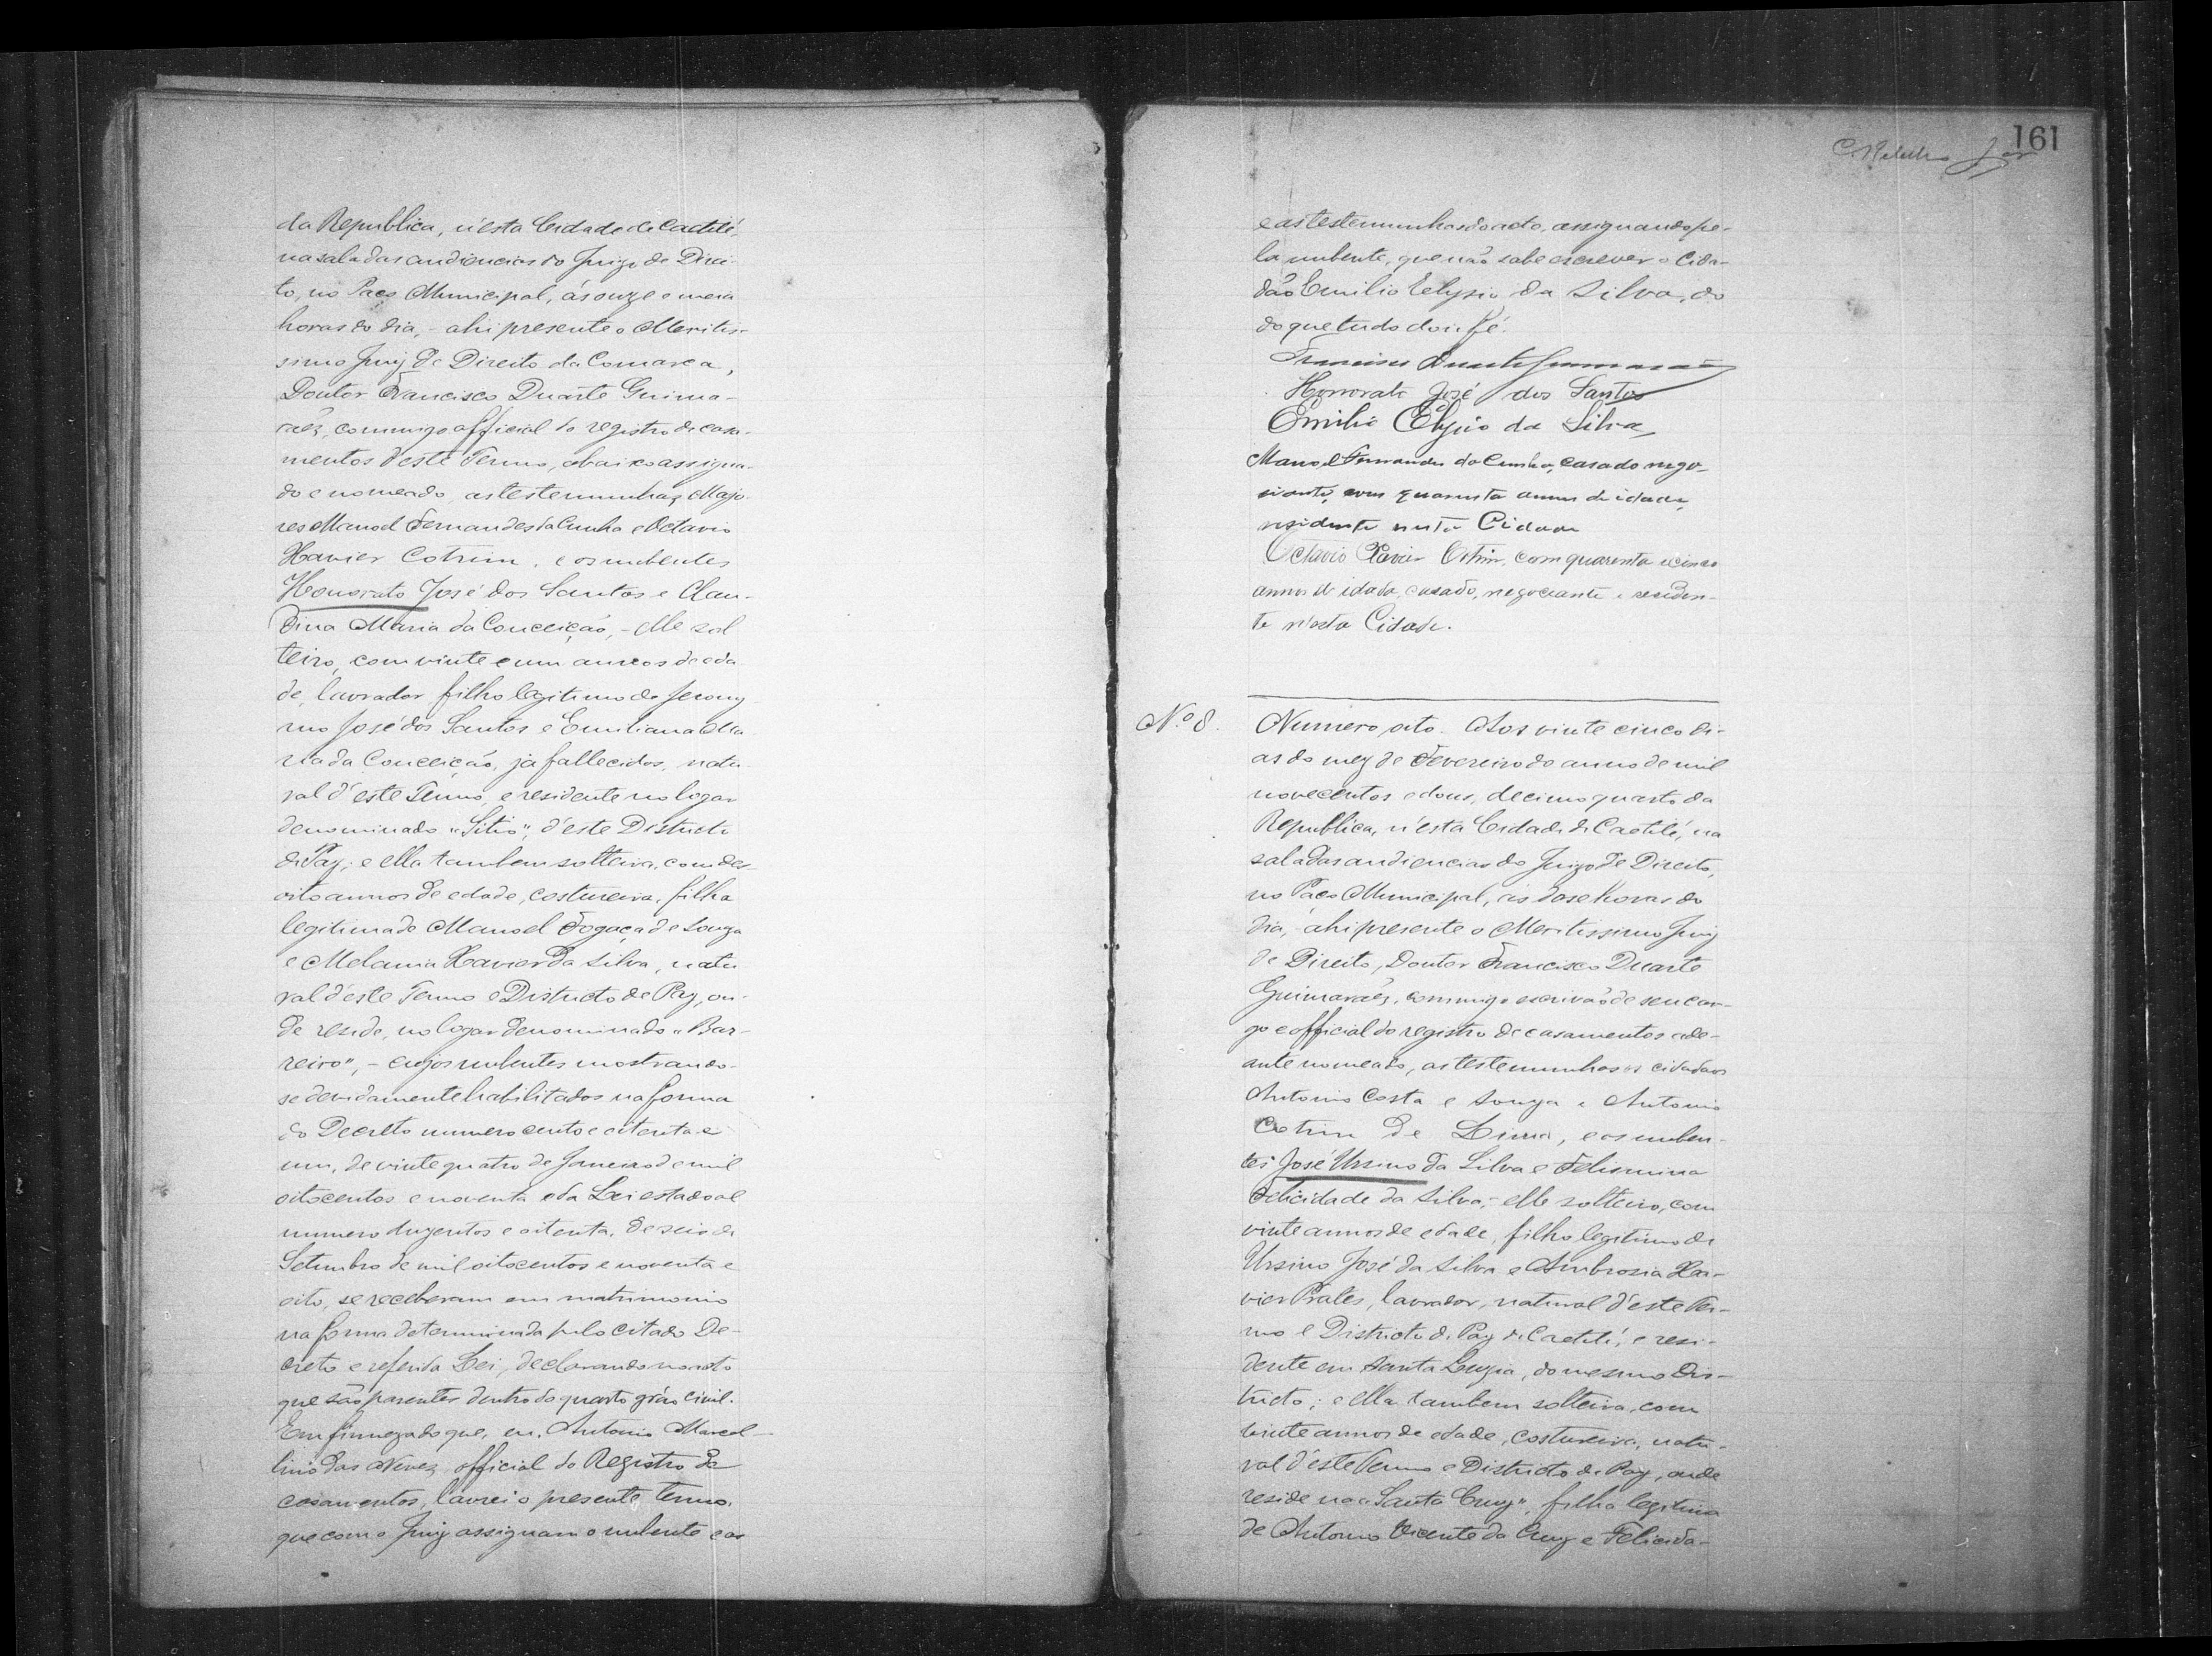 da Republica, n'esta Cidade de Caetité,
na sala das audiencias do Juizo de Direi-
to, no Paço Municipal, ás onze e meia
horas do dia, - ahi presente o Meritis-
simo Juiz de Direito da Comarca,
Doutor Francisco Duarte Guima-
rães, commigo official do registro de casa-
mentos d'este Termo, abaixo assigna-
do e nomeado, as testemunhas, Majo-
res Manoel Fernandes da Cunha e Octavio
Xavier Cotrim, e os nubentes
Honorato José dos Santos e Clau-
dina Maria da Conceição, - elle sol
teiro, com vinte e um annos de eda
de, lavrador filho legitimo de Jerony
mo José dos Santos e Emiliana Ma
ria da Conceição, já fallecidos, natu-
ral d'este Termo, e residente no logar
denominado "Sitio", d'este Districto
de Paz; e ella tambem solteira, com des-
oito annos de edade, costureira, filha
legitima de Manoel Fogaça de Souza
e Melania Xavier da Silva, natu
ral d'este Termo e Districto de Paz, on-
de reside, no logar denominado "Bar-
reiro", - cujos nubentes mostrando-
se devidamente habilitados na forma
do Decreto numero cento e oitenta e
um, de vinte quatro de Janeiro de mil
oitocentos e noventa e da Lei estadoal
numero duzentos e oitenta, de seis de
Setembro de mil oitocentos e noventa e
oito, se receberam em matrimonio
na forma determinada pelo citado De-
creto e referida Lei, declarando no acto
que são parentes dentro do quarto gráo civil.
Em firmeza do que, eu, Antonio Marcol-
lino das Neves, official do Registro de
casamentos, lavrei o presente termo,
que com o Juiz assignam o nubente e as
161
e as testemunhas do acto, assignando pe-
la nubente, que não sabe escrever o Cida-
dão Emilio Elysio da Silva, do
do que tudo dou fé.
Francisco Duarte Guimarães
Honorato José dos Santos
Emilio Elysio da Silva
Manoel Fernandes da Cunha, casado nego-
ciante, com quarenta annos de idade,
residente nesta Cidade
Octavio Xavier Cotrim, com quarenta e cinco
annos de idade, casado, negociante e residen-
te nesta Cidade.
Nº 8. Numero oito. Aos vinte cinco di-
as do mez de Fevereiro do anno de mil
novecentos e dous, decimo quarto da
Republica, n'esta Cidade de Caetité, na
sala das audiencias do Juizo de Direito,
no Paço Municipal, ás dose horas do
dia, ahi presente o Meritissimo Juiz
de Direito, Doutor Francisco Duarte
Guimarães, commigo escrivão de seu car-
go e official do registro de casamentos ade-
ante nomeado, as testemunhas os cidadãos
Antonio Costa e Souza e Antonio
Cotrim de Lima, e os nuben-
tes José Ursino da Silva e Felismina
Felicidade da Silva; elle solteiro, com
vinte annos de edade, filho legitimo de
Ursino José da Silva e Ambrosia Xa-
vier Prates, lavrador, natural d'este Ter-
mo e Districto de Paz de Caetité, e resi-
dente em Santa Luzia, do mesmo Dis-
tricto; e ella tambem solteira, com
vinte annos de edade, costureira, natu-
ral d'este Termo e Districto de Paz, onde
reside na "Santa Cruz", filha legitima
de Antonio Vicente da Cruz e Felicida-